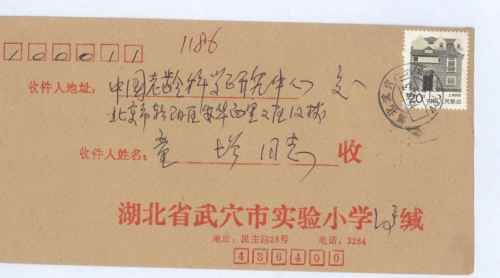 100011
1186
收件人地址: 中国老龄科学研究中心 交
北京市朝阳区安华西里
收件人姓名: 童 同志 收
湖北省武穴市实验小学 缄
地址: 民主路28号 电话: 3284
436400
20
中国人民邮政